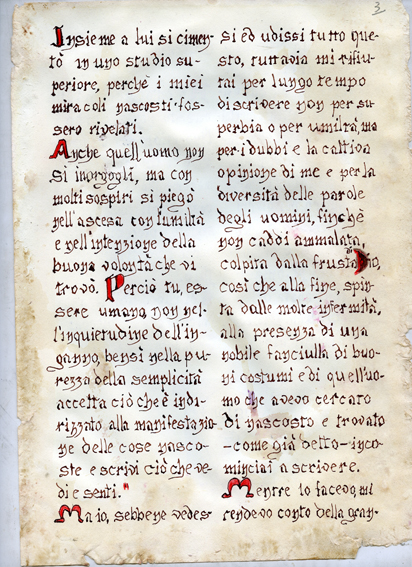 3
Insieme a lui si cimen-
tò in uno studio su-
periore, perchè i miei
miracoli nascosti fos-
sero rivelati.
Anche quell'uomo non
si inorgoglì, ma con
molti sospiri si piegò
nell'ascesa con umiltà
e nell'intenzione della
buona volontà che vi
trovò. Perciò tu, es-
sere umano, non nel-
l'inquietudine dell'in-
ganno, bensì nella pu-
rezza della semplicità
accetta ciò che è indi-
rizzato alla manifestazio-
ne delle cose nasco-
ste e scrivi ciò che ve-
di e senti."
Ma io, sebbene vedes-
si ed udissi tutto que-
sto, tuttavia mi rifiu-
tai per lungo tempo
di scrivere non per su-
perbia o per umiltà, ma
per i dubbi e la cattiva
opinione di me e per la
diversità delle parole
degli uomini, finchè
non caddi ammalata,
colpita dalla frusta di Dio,
così che alla fine, spin-
ta dalle molte infermità,
alla presenza di una
nobile fanciulla di buo-
ni costumi e di quell'uo-
mo che avevo cercato
di nascosto e trovato
-come già detto- inco-
minciai a scrivere.
Mentre lo facevo, mi
rendevo conto della gran-